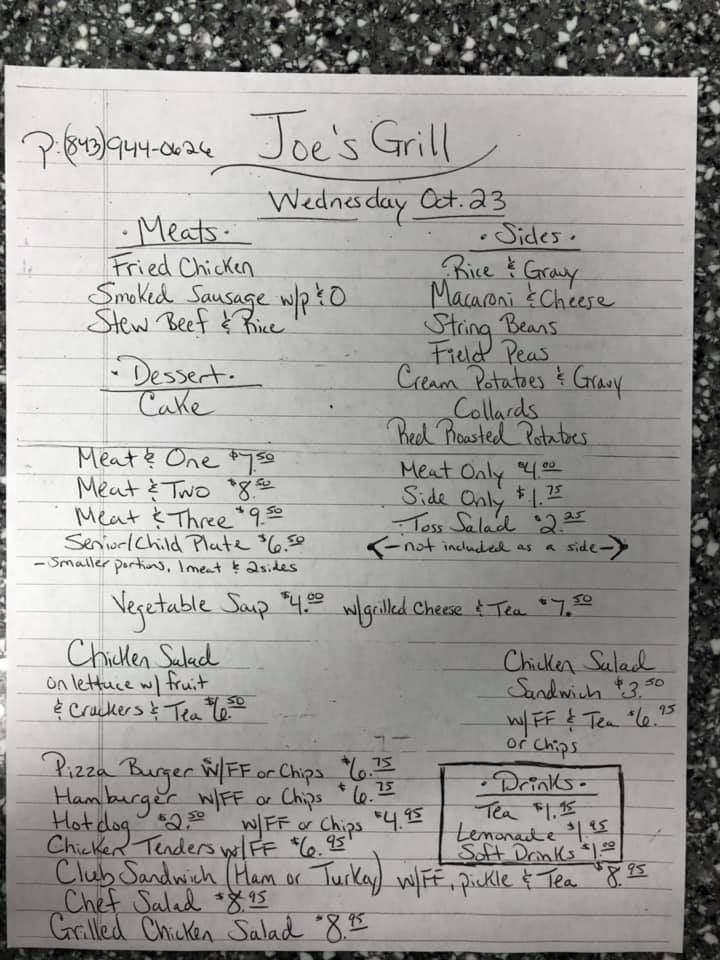 P: (843) 944-0626 Joe's Grill
Wednesday Oct. 23
· Meats ·
Fried Chicken
Smoked Sausage w/p & O
Stew Beef & Rice
· Dessert ·
Cake
· Sides ·
Rice & Gravy
Macaroni & Cheese
String Beans
Field Peas
Cream Potatoes & Gravy
Collards
Red Roasted Potatoes
Meat & One $7.50
Meat & Two $8.50
Meat & Three $9.50
Senior/Child Plate $6.50
- Smaller portions, 1 meat & 2 sides
Meat Only $4.00
Side Only $1.75
Toss Salad $2.25
<- not included as a side ->
Vegetable Soup $4.00 w/grilled Cheese & Tea $7.50
Chicken Salad
on lettuce w/ fruit
& Crackers & Tea $6.50
Chicken Salad
Sandwich $3.50
w/FF & Tea $6.95
or Chips
Pizza Burger w/FF or Chips $6.75
Hamburger w/FF or Chips $6.75
Hotdog $2.50 w/FF or Chips $4.95
Chicken Tenders w/FF $6.95
· Drinks ·
Tea $1.95
Lemonade $1.95
Soft Drinks $1.00
Club Sandwich (Ham or Turkey) w/FF, pickle & Tea $8.95
Chef Salad $8.95
Grilled Chicken Salad $8.95